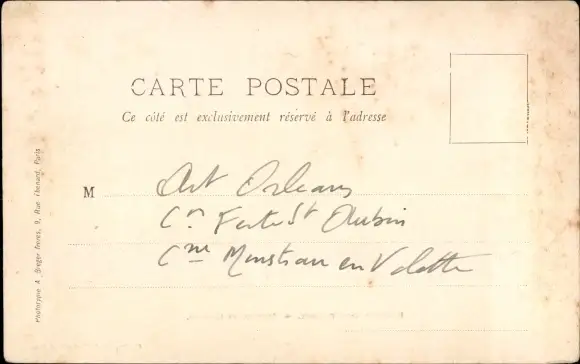 CARTE POSTALE
Ce côté est exclusivement réservé à l'adresse
M Art Orleans
Cⁿ Ferté Sᵗ Aubin
Cⁿᵉ en
Phototypie A. Breger frères, 9, Rue Thénard, Paris